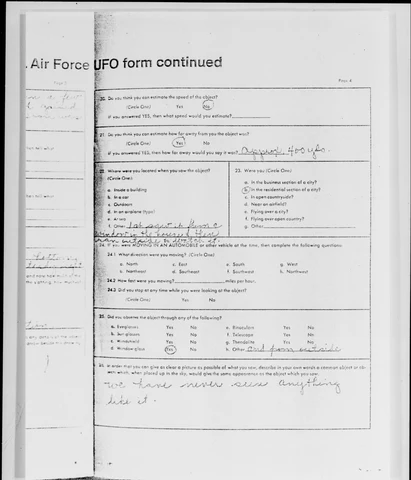 . Air Force UFO form continued
Page 4
20. Do you think you can estimate the speed of the object?
(Circle One) Yes No
If you answered YES, then what speed would you estimate?
21. Do you think you can estimate how far away from you the object was?
(Circle One) Yes No
If you answered YES, then how far away would you say it was? Approx 400 yds.
22. Where were you located when you saw the object?
(Circle One)
a. Inside a building
b. In a car
c. Outdoors
d. In an airplane (type)
e. At sea
f. Other 1st saw it from a
window in the house & then
ran outside & watched it.
23. Were you (Circle One)
a. In the business section of a city?
b. In the residential section of a city?
c. In open countryside?
d. Near an airfield?
e. Flying over a city?
f. Flying over open country?
g. Other
24. IF you were MOVING IN AN AUTOMOBILE or other vehicle at the time, then complete the following questions
24.1 What direction were you moving? (Circle One)
a. North c. East e. South g. West
b. Northeast d. Southeast f. Southwest h. Northwest
24.2 How fast were you moving? miles per hour.
24.3 Did you stop at any time while you were looking at the object?
(Circle One) Yes No
25. Did you observe the object through any of the following?
a. Eyeglasses Yes No e. Binoculars Yes No
b. Sun glasses Yes No f. Telescope Yes No
c. Windshield Yes No g. Theodolite Yes No
d. Window glass Yes No h. Other and from outside
26. In order that you can give as clear a picture as possible of what you saw, describe in your own words a common object or ob-
jects which, when placed up in the sky, would give the same appearance as the object which you saw.
we have never seen anything
like it.